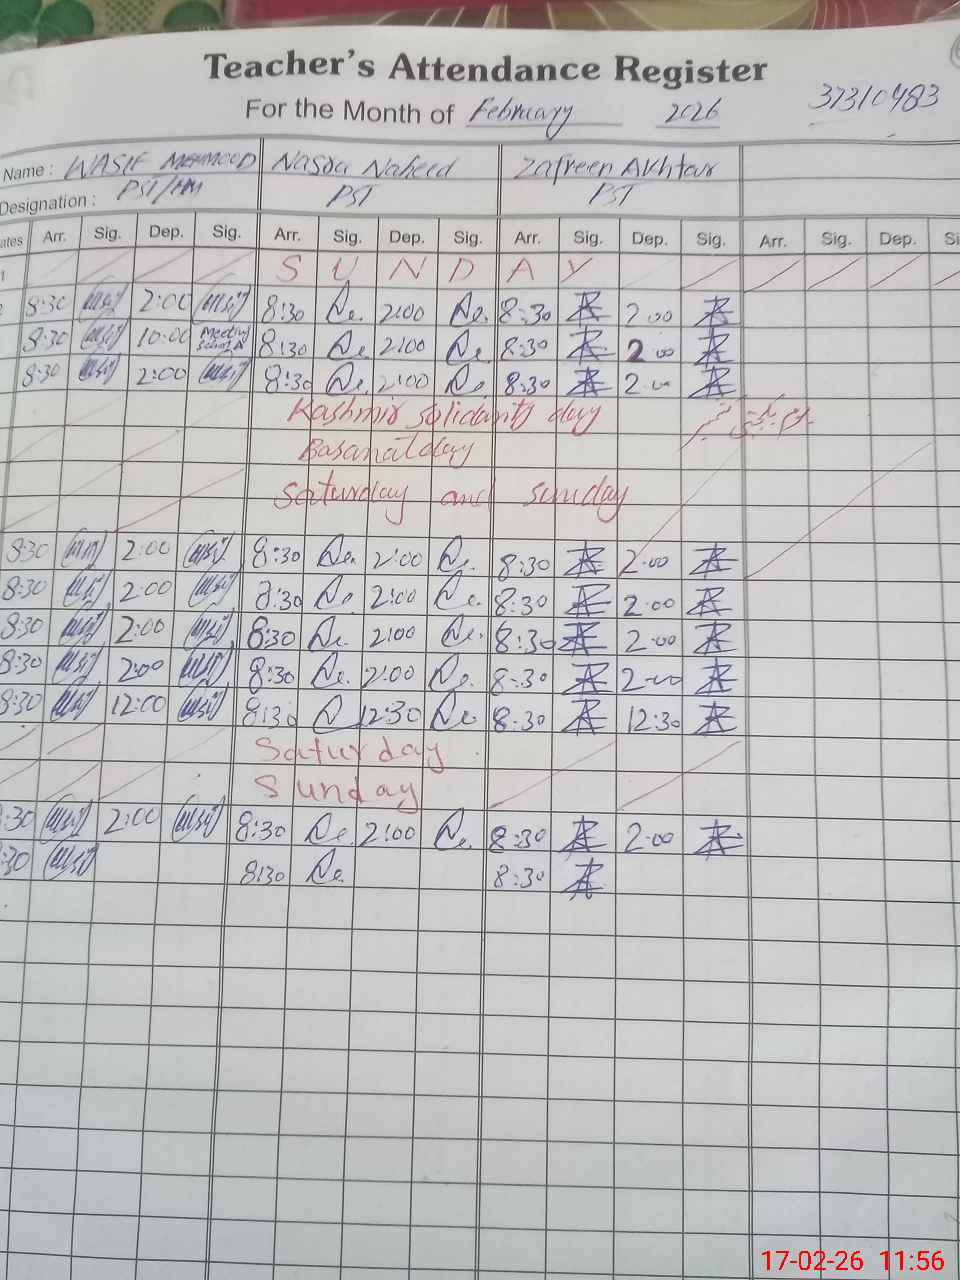 Teacher's Attendance Register
For the Month of February 2026 37310483
Name : WASIF MEHMOOD Nasra Naheed Zafreen Akhtar
Designation : PST/HM PST PST
ates Arr. Sig. Dep. Sig. Arr. Sig. Dep. Sig. Arr. Sig. Dep. Sig. Arr. Sig. Dep. Si
1 SUNDAY
2 8:30 2:00 8:30 2:00 8:30 2:00
8:30 10:00 Meeting 8:30 2:00 8:30 2:00
8:30 2:00 8:30 2:00 8:30 2:00
Kashmir solidarity day
Basanat day
Saturday and sunday
8:30 2:00 8:30 2:00 8:30 2:00
8:30 2:00 8:30 2:00 8:30 2:00
8:30 2:00 8:30 2:00 8:30 2:00
8:30 2:00 8:30 2:00 8:30 2:00
8:30 12:00 8:30 12:30 8:30 12:30
Saturday
Sunday
:30 2:00 8:30 2:00 8:30 2:00
:30 8:30 8:30
17-02-26 11:56